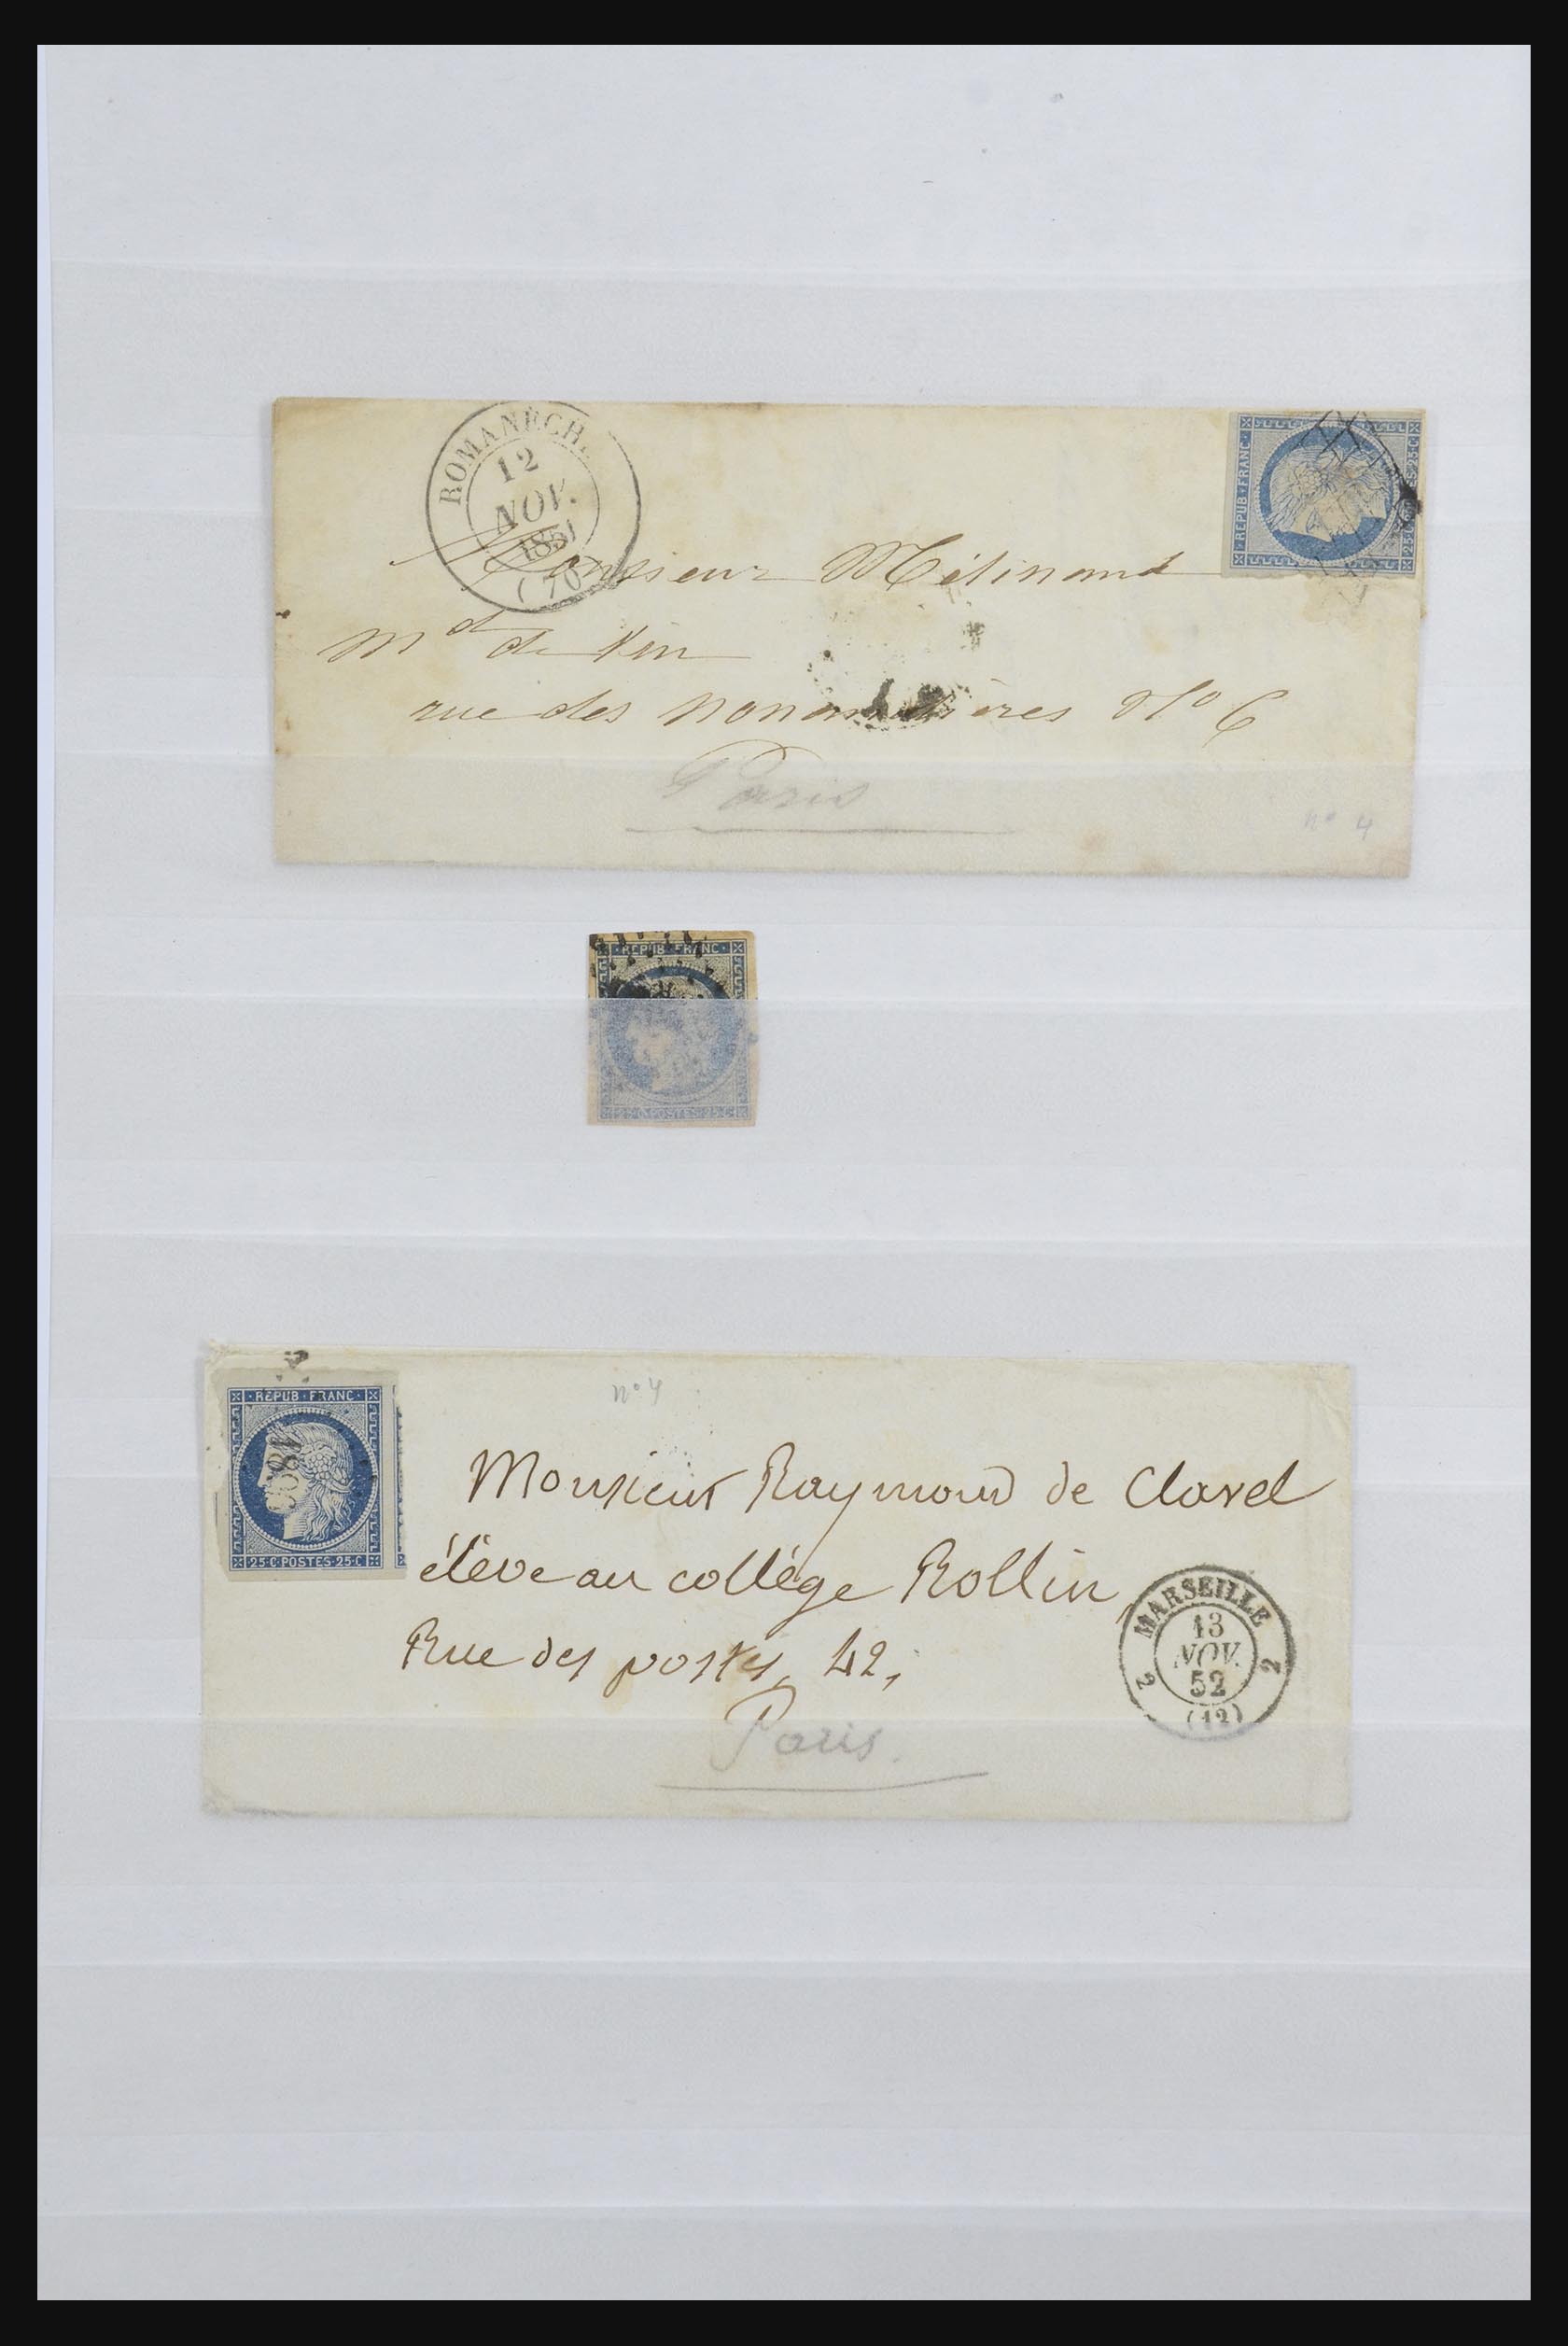 ROMANÈCH.
12
NOV.
1851
(70)
REPUB·FRANC·
25·C·
Monsieur Mélinand
Md de Vin
rue des nonandières No 6
Paris
no 4
·REPUB·FRANC·
25·C·POSTES·25·C·
·REPUB·FRANC·
25·C·POSTES·25·C·
no 4
Monsieur Raymond de Clavel
élève au collége Rollin,
Rue des postes, 42,
Paris.
MARSEILLE
13
NOV.
52
2 2
(12)